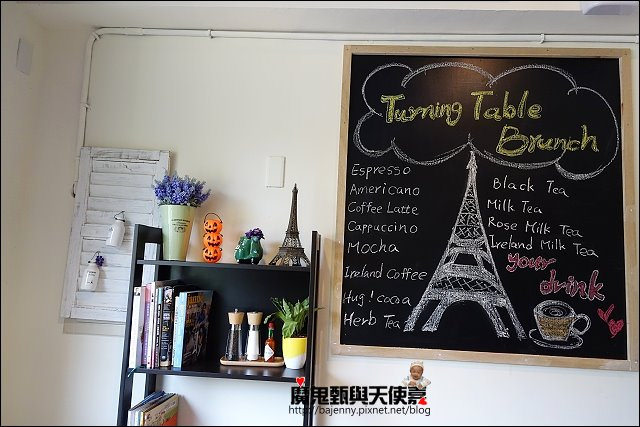 Turning Table
Brunch
Espresso
Americano
Coffee Latte
Cappuccino
Mocha
Ireland Coffee
Hug! cocoa
Herb Tea
Black Tea
Milk Tea
Rose Milk Tea
Ireland Milk Tea
your
drink
魔鬼甄與天使嘉
http://bajenny.pixnet.net/blog